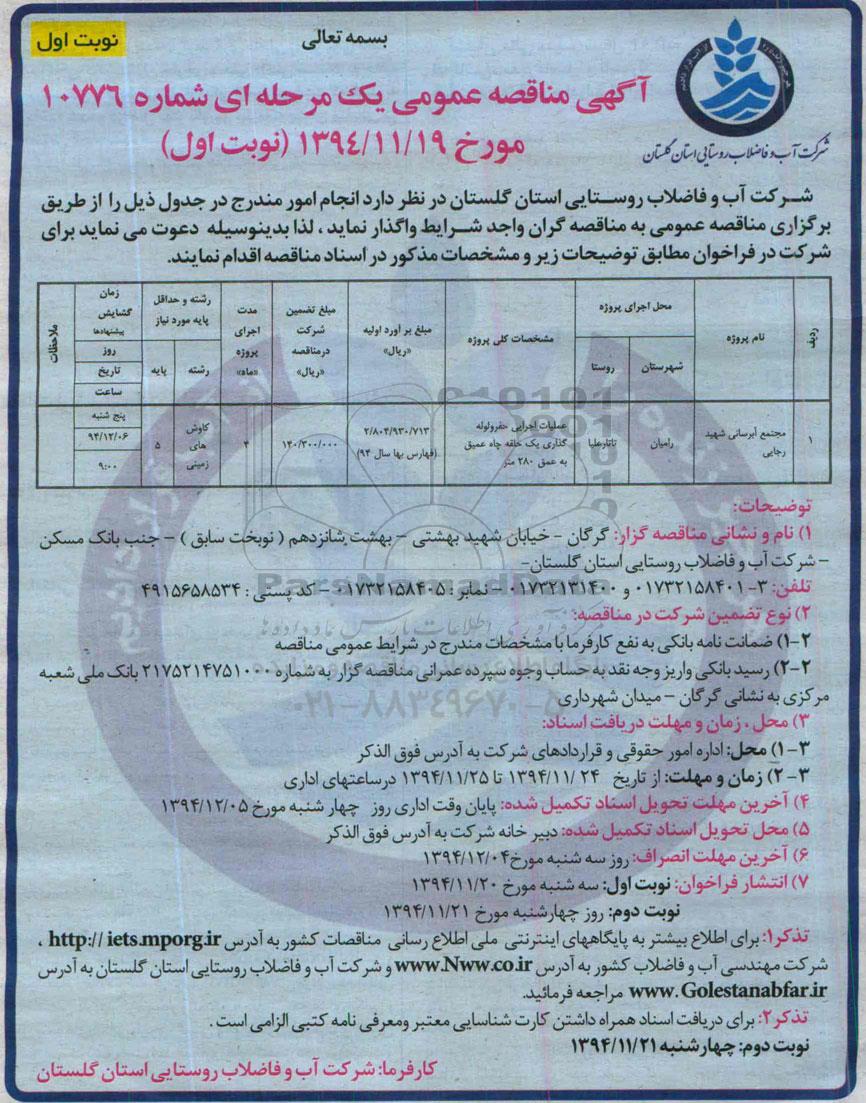 بسمه تعالی
نوبت اول
آگهی مناقصه عمومی یک مرحله ای شماره ۱۰۷۷۶
مورخ ۱۳۹٤/۱۱/۱۹ (نوبت اول)
شرکت آب و فاضلاب روستایی استان گلستان
شرکت آب و فاضلاب روستایی استان گلستان در نظر دارد انجام امور مندرج در جدول ذیل را از طریق
برگزاری مناقصه عمومی به مناقصه گران واجد شرایط واگذار نماید ، لذا بدینوسیله دعوت می نماید برای
شرکت در فراخوان مطابق توضیحات زیر و مشخصات مذکور در اسناد مناقصه اقدام نمایند.
ردیف
نام پروژه
محل اجرای پروژه
شهرستان
روستا
مشخصات کلی پروژه
مبلغ بر آورد اولیه
«ریال»
مبلغ تضمین
شرکت
درمناقصه
«ریال»
مدت
اجرای
پروژه
«ماه»
رشته و حداقل
پایه مورد نیاز
رشته
پایه
زمان
گشایش
پیشنهادها
روز
تاریخ
ساعت
ملاحظات
۱
مجتمع آبرسانی شهید
رجایی
رامیان
تاتارعلیا
عملیات اجرایی حفرولوله
گذاری یک حلقه چاه عمیق
به عمق ۲۸۰ متر
۲/۸۰۴/۹۳۰/۷۱۳
(فهارس بها سال ۹۴)
۱۴۰/۳۰۰/۰۰۰
۴
کاوش
های
زمینی
۵
پنج شنبه
۹۴/۱۲/۰۶
۹:۰۰
توضیحات:
۱) نام و نشانی مناقصه گزار: گرگان - خیابان شهید بهشتی - بهشت شانزدهم ( نوبخت سابق ) - جنب بانک مسکن
- شرکت آب و فاضلاب روستایی استان گلستان-
تلفن: ۳- ۰۱۷۳۲۱۵۸۴۰۱ و ۰۱۷۳۲۱۳۱۴۰۰ - نمابر : ۰۱۷۳۲۱۵۸۴۰۵ - کد پستی : ۴۹۱۵۶۵۸۵۳۴
۲) نوع تضمین شرکت در مناقصه:
۲-۱) ضمانت نامه بانکی به نفع کارفرما با مشخصات مندرج در شرایط عمومی مناقصه
۲-۲) رسید بانکی واریز وجه نقد به حساب وجوه سپرده عمرانی مناقصه گزار به شماره ۲۱۷۵۲۱۴۷۵۱۰۰۰ بانک ملی شعبه
مرکزی به نشانی گرگان - میدان شهرداری
۳) محل ، زمان و مهلت دریافت اسناد:
۳-۱) محل: اداره امور حقوقی و قراردادهای شرکت به آدرس فوق الذکر
۳-۲) زمان و مهلت: از تاریخ ۲۴ /۱۳۹۴/۱۱ تا ۱۳۹۴/۱۱/۲۵ درساعتهای اداری
۴) آخرین مهلت تحویل اسناد تکمیل شده: پایان وقت اداری روز چهار شنبه مورخ ۱۳۹۴/۱۲/۰۵
۵) محل تحویل اسناد تکمیل شده: دبیر خانه شرکت به آدرس فوق الذکر
۶) آخرین مهلت انصراف: روز سه شنبه مورخ۱۳۹۴/۱۲/۰۴
۷) انتشار فراخوان: نوبت اول: سه شنبه مورخ ۱۳۹۴/۱۱/۲۰
نوبت دوم: روز چهارشنبه مورخ ۱۳۹۴/۱۱/۲۱
تذکر۱: برای اطلاع بیشتر به پایگاههای اینترنتی ملی اطلاع رسانی مناقصات کشور به آدرس http:// iets.mporg.ir ،
شرکت مهندسی آب و فاضلاب کشور به آدرس www.Nww.co.ir و شرکت آب و فاضلاب روستایی استان گلستان به آدرس
www. Golestanabfar.ir مراجعه فرمائید.
تذکر۲: برای دریافت اسناد همراه داشتن کارت شناسایی معتبر ومعرفی نامه کتبی الزامی است .
نوبت دوم: چهارشنبه ۱۳۹۴/۱۱/۲۱
کارفرما: شرکت آب و فاضلاب روستایی استان گلستان
ParsNamadData
۰۲۱-۸۸۳۴۹۶۷۰-۵